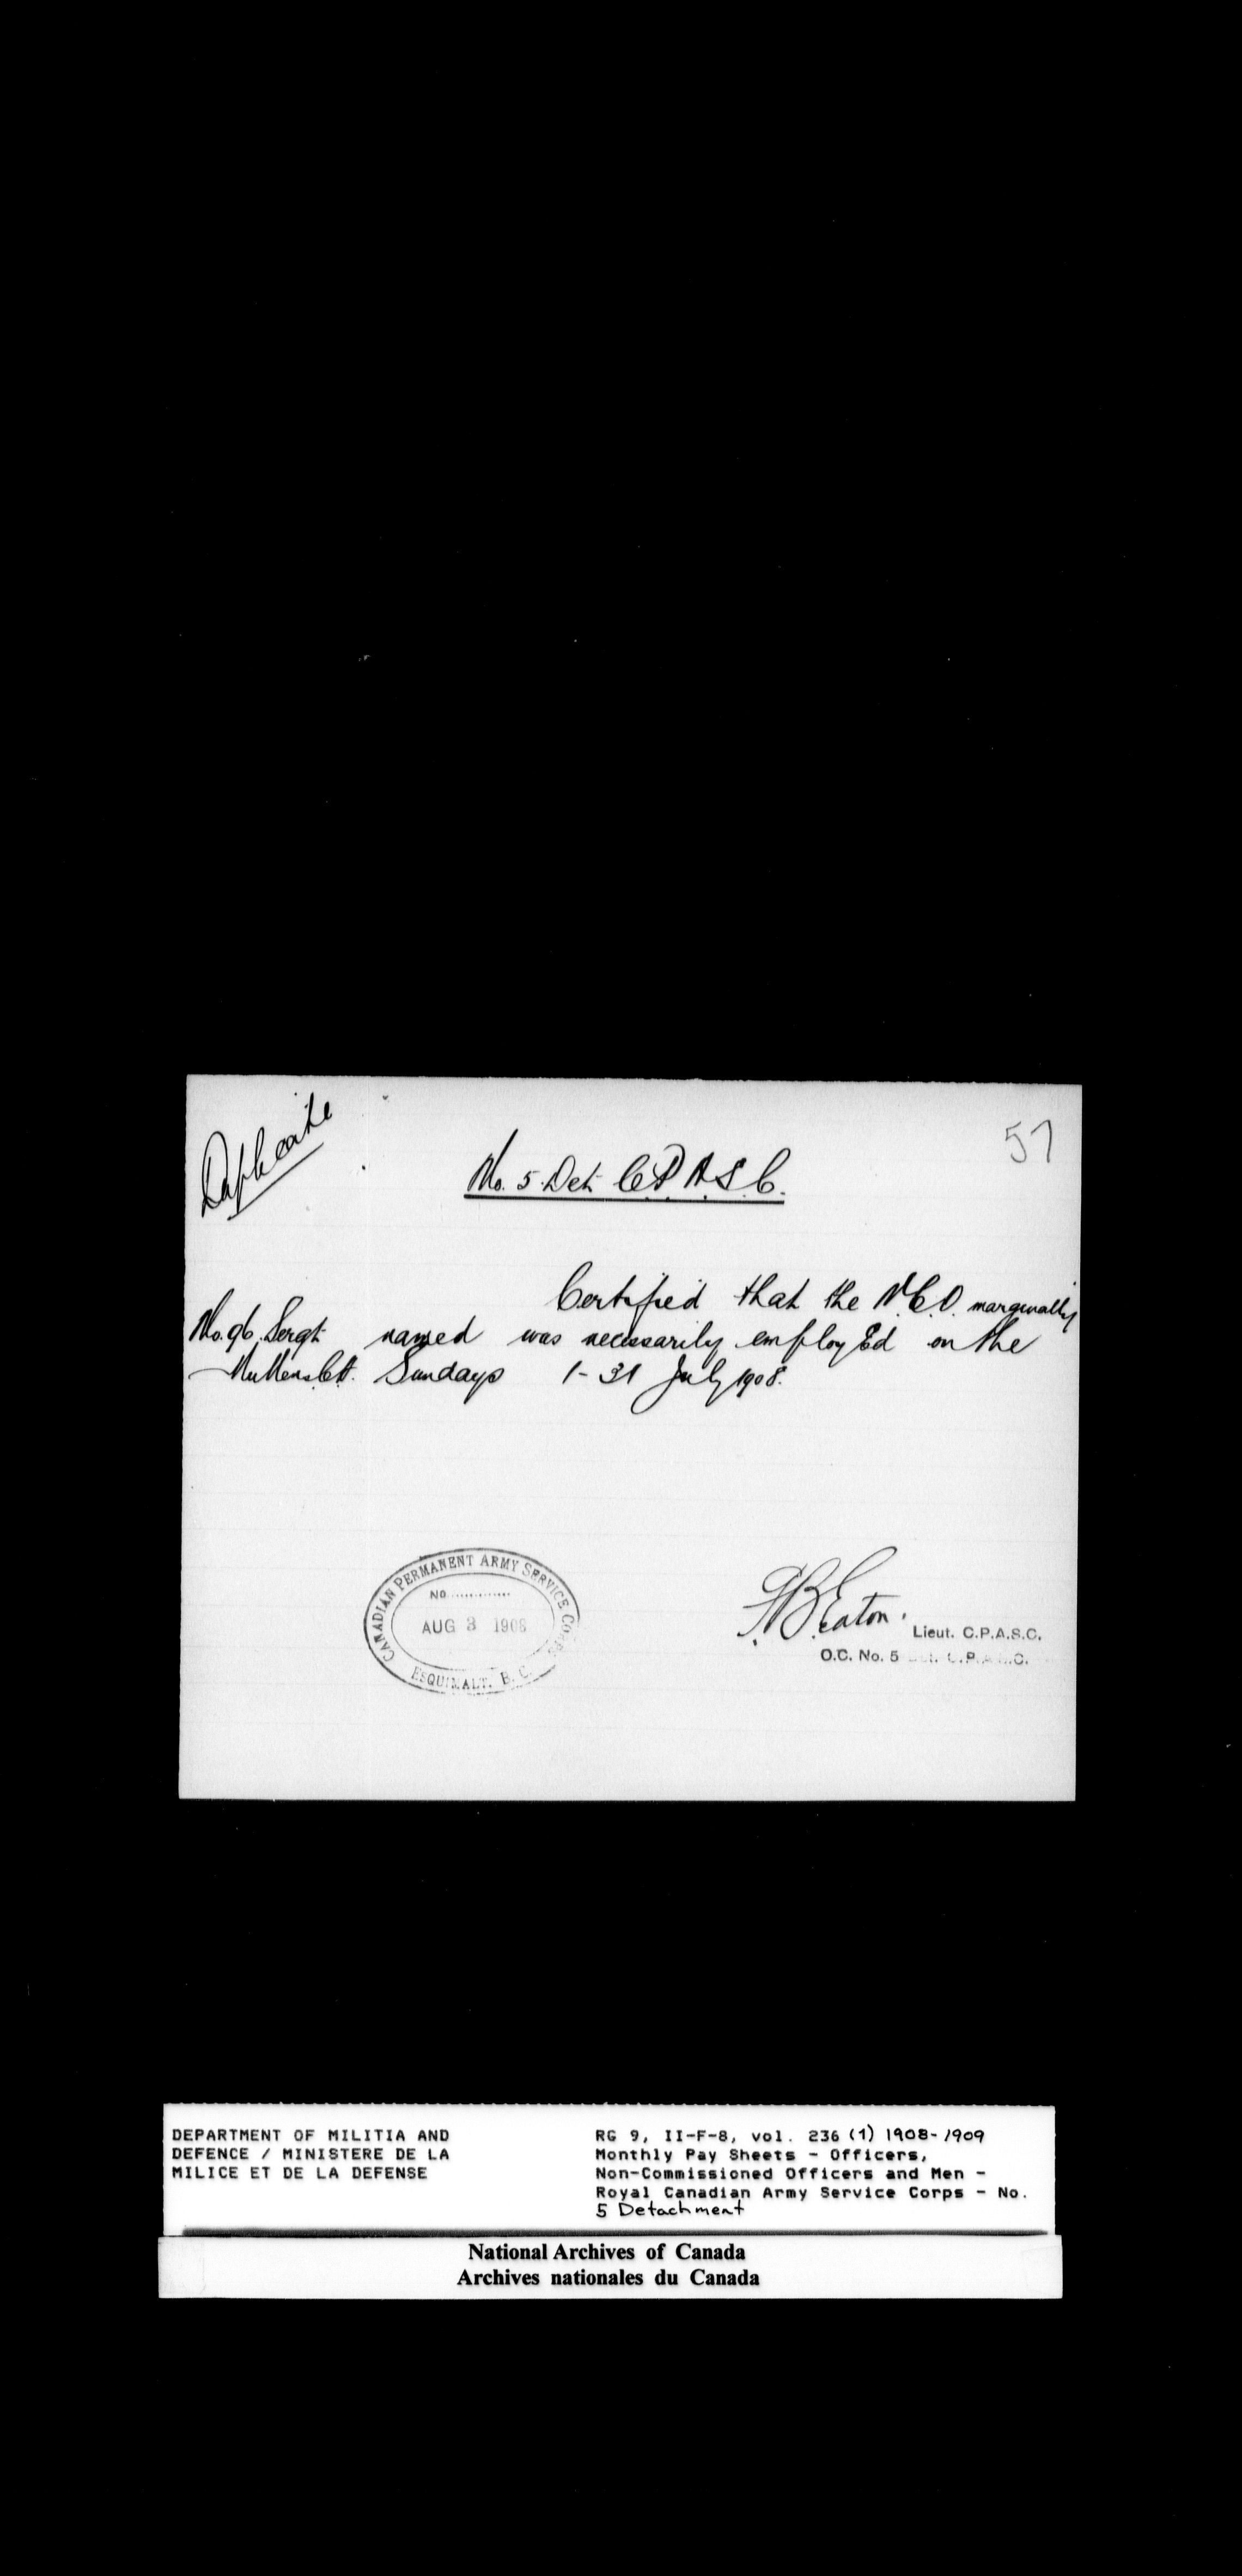 Duplicate
57
No. 5 Det C.P.A.S.C.
Certified that the N.C.O. marginally
No. 96. Sergt named was necessarily employed on the
Sundays 1-31 July 1908.
CANADIAN PERMANENT ARMY SERVICE CORPS
NO.
AUG 3 1908
ESQUIMALT. B. C.
Eaton.
Lieut. C.P.A.S.C.
O.C. No. 5 Det. C.P.A.S.C.
DEPARTMENT OF MILITIA AND
DEFENCE / MINISTERE DE LA
MILICE ET DE LA DEFENSE
RG 9, II-F-8, vol. 236 (1) 1908-1909
Monthly Pay Sheets - Officers,
Non-Commissioned Officers and Men -
Royal Canadian Army Service Corps - No.
5 Detachment
National Archives of Canada
Archives nationales du Canada